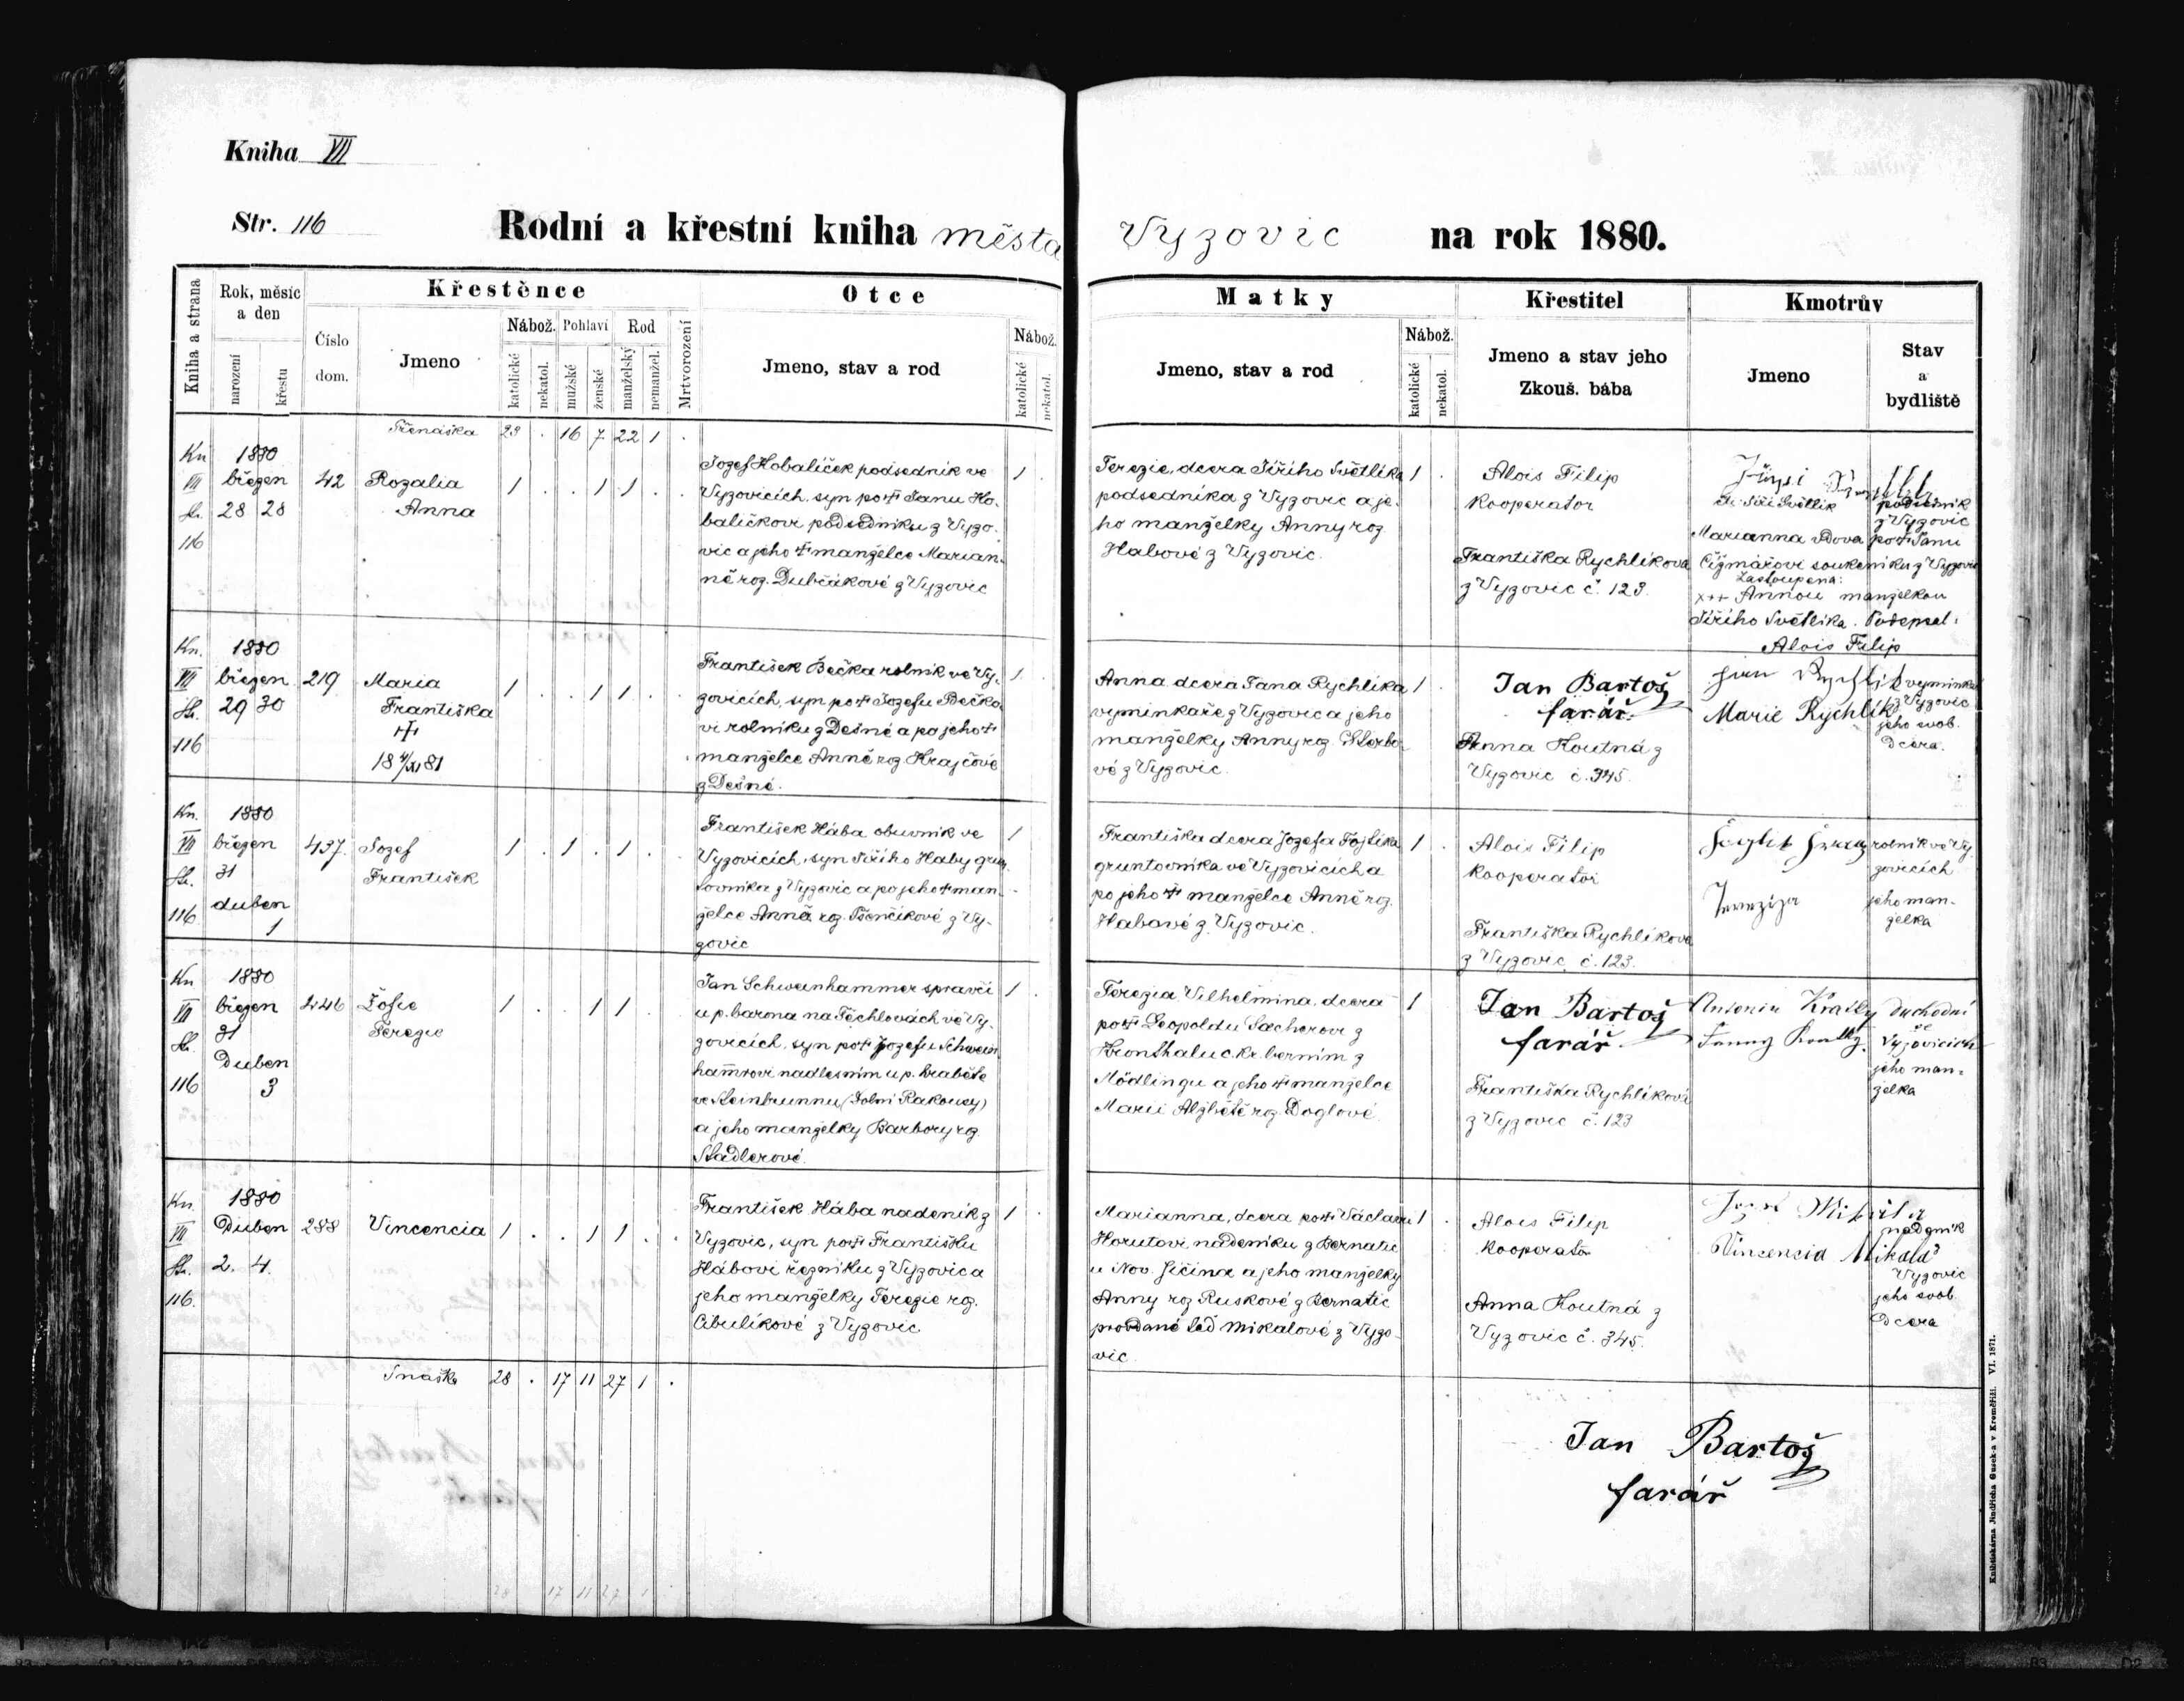 Kniha VII
Str. 116 Rodní a křestní kniha města Vyzovic na rok 1880.
Kniha a strana
Rok, měsíc a den
narození
křestu
Křestěnce
Číslo dom.
Jmeno
Nábož.
katolické
nekatol.
Pohlaví
mužské
ženské
Rod
manželský
nemanžel.
Mrtvorození
Otce
Jmeno, stav a rod
Nábož.
katolické
nekatol.
Matky
Jmeno, stav a rod
Nábož.
katolické
nekatol.
Křestitel
Jmeno a stav jeho
Zkouš. bába
Kmotrův
Jmeno
Stav
a
bydliště
Přenáška 23 . 16 7 22 1 .
Kn
VII
Str.
116
1880
březen
28 28
42
Rozalia
Anna
1 . . 1 1 . .
Jozef Hobalíček podsedník ve
Vyzovicích, syn po † Janu Ho-
balíčkovi podsedníku z Vyzo-
vic a jeho † manželce Marian-
ně roz. Dubčákové z Vyzovic
1 .
Terezie, dcera Jiřího Světlíka
podsedníka z Vyzovic a je-
ho manželky Anny roz
Habové z Vyzovic.
1 .
Alois Filip
Kooperator
Františka Rychlíkova
z Vyzovic č. 123.
Jiří Světlík podsedník
z Vyzovic
Marianna vdova po † Janu
Čižmářovi soukeníku z Vyzovic
Zastoupena:
+++ Annou manželkou
Jiřího Světlíka. Podepsal:
Alois Filip
Kn.
VII
Str.
116
1880
březen
29 30
219
Maria
Františka
†
18 4/XI 81
1 . . 1 1 . .
František Bečka rolník ve Vy-
zovicích, syn po † Jozefu Bečko-
vi rolníku z Dešné a po jeho †
manželce Anně roz. Krajčové
z Dešné.
1 .
Anna dcera Jana Rychlíka
výminkaře z Vyzovic a jeho
manželky Anny roz.
vé z Vyzovic.
1 .
Jan Bartoš
farář
Anna Koutná z
Vyzovic č. 345.
Marie Rychlík
z Vyzovic
jeho svob.
dcera.
Kn.
VII
Str.
116.
1880
březen
31
duben
1
437.
Jozef
František
1 . 1 . 1 . .
František Hába obuvník ve
Vyzovicích, syn Jiřího Háby grun-
tovníka z Vyzovic a po jeho † man-
želce Anně roz. Pšenčíkové z Vy-
zovic
1
Františka dcera Jozefa Fojtíka
gruntovníka ve Vyzovicích a
po jeho † manželce Anně roz.
Habové z Vyzovic.
1 .
Alois Filip
Kooperator
Františka Rychlíkova
z Vyzovic č. 123.
rolník ve Vy-
zovicích
Terezija jeho man-
želka
Kn
VII
Str.
116
1880
březen
31
Duben
3
446
Žofie
Terezie
1 . . 1 1 . .
Jan Schweinhammer správčí
u p. barona na Těchlovách ve Vy-
zovicích, syn po † Jozefu Schwein-
hamrovi nadlesním u p. hraběte
ve Steinbrunnu (Dolní Rakousy)
a jeho manželky Barbory roz.
Stadlerové.
1 .
Terezia Vilhelmina, dcera
po † Leopoldu Sacherovi z
Kronthalu c. kr. berním z
Mödlingu a jeho † manželce
Marii Alžbětě roz. Doglové.
1
Jan Bartoš
farář
Františka Rychlíková
z Vyzovic č. 123
Antonín Krátky důchodní
ve
Vyzovicích
Fanny Kratky.
jeho man-
želka
Kn.
VII
Str.
116.
1880
Duben
2. 4.
288
Vincencia
1 . . 1 1 . .
František Hába nadeník z
Vyzovic, syn po † Františku
Hábovi řezníku z Vyzovic a
jeho manželky Terezie roz.
Cibulíkové z Vyzovic
1 .
Marianna, dcera po † Václavu
Horutovi, nadeníku z Bernatic
u Nov. Jičína a jeho manželky
Anny roz Ruskové z Bernatic
provdané teď Mikalové z Vyzo-
vic.
1 .
Alois Filip
Kooperator
Anna Koutná z
Vyzovic č. 345.
nadeník
Vincencia Mikala z
Vyzovic
jeho svob.
Dcera
Snáška 28 . 17 11 27 1 .
Jan Bartoš
farář
Knihtiskárna Jindřicha Gusek-a v Kroměříži. VI. 1871.